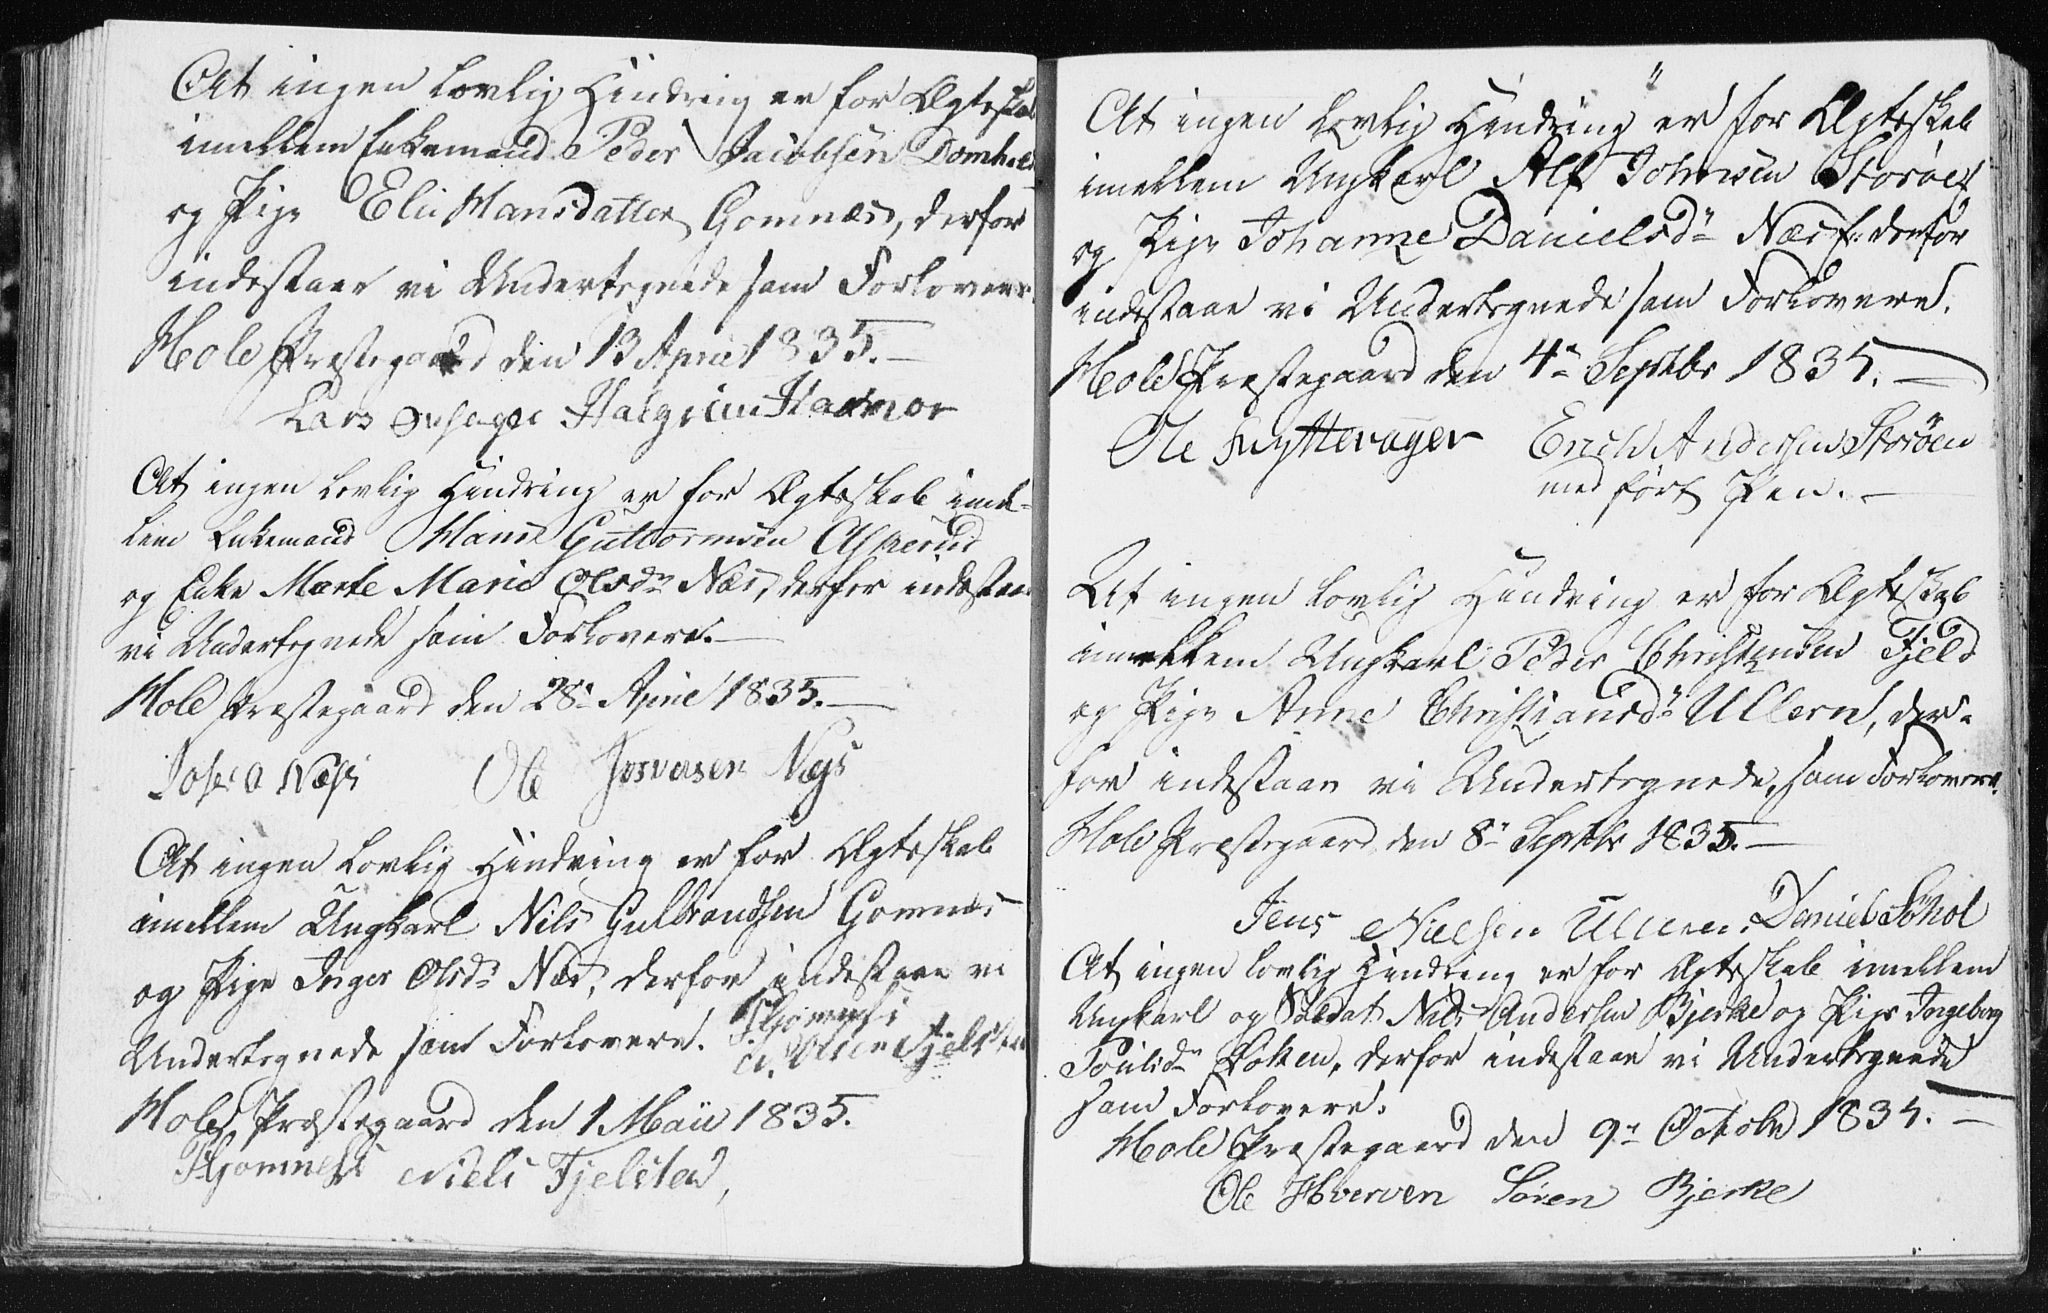 At ingen lovlig Hindring er for Ægteskab
imellem Enkemand Peder Jacobsen
og Pige Eli Hansdatter Gomnæs, derfor
indestaae vi Undertegnede som Forlovere.
Hole Præstegaard den 13 April 1835.
Lars
At ingen lovlig Hindring er for Ægteskab imel-
lem Enkemand Hans Guttormsen Asperud
og Enke Marte Marie Olsdr Næs, derfor indestaae
vi Undertegnede som Forlovere.
Hole Præstegaard den 28de April 1835.
Ole
At ingen lovlig Hindring er for Ægteskab
imellem Ungkarl Nils Gulbrandsen Gomnæs
og Pige Inger Olsdr Næs, derfor indestaae vi
Undertegnede som Forlovere.
Hole Præstegaard den 1 Maii 1835.
Niels Fjelstad,
At ingen lovlig Hindring er for Ægteskab
imellem Ungkarl Alf Johnsen Storøen
og Pige Johanne Danielsdr derfor
indestaae vi Undertegnede som Forlovere.
Hole Præstegaard den 4de Septbr 1835.
Ole Fryttevager Erich Andersen Storøen
med ført Pen.
At ingen lovlig Hindring er for Ægteskab
imellem Ungkarl Peder Christensen Fjeld
og Pige Anne Christiansdr Ullern, der-
for indestaae vi Undertegnede, som Forlovere.
Hole Præstegaard den 8de Septbr 1835.
Jens Nielsen Ullern. Daniel Søhol
At ingen lovlig Hindring er for Ægteskab imellem
Ungkarl og Soldat Nils Andersen Bjerke og Pige Ingeborg
Poulsdr derfor indestaae vi Undertegnede
som Forlovere.
Hole Præstegaard den 9de Octobr 1835.
Ole Hverven Søren Bjerke